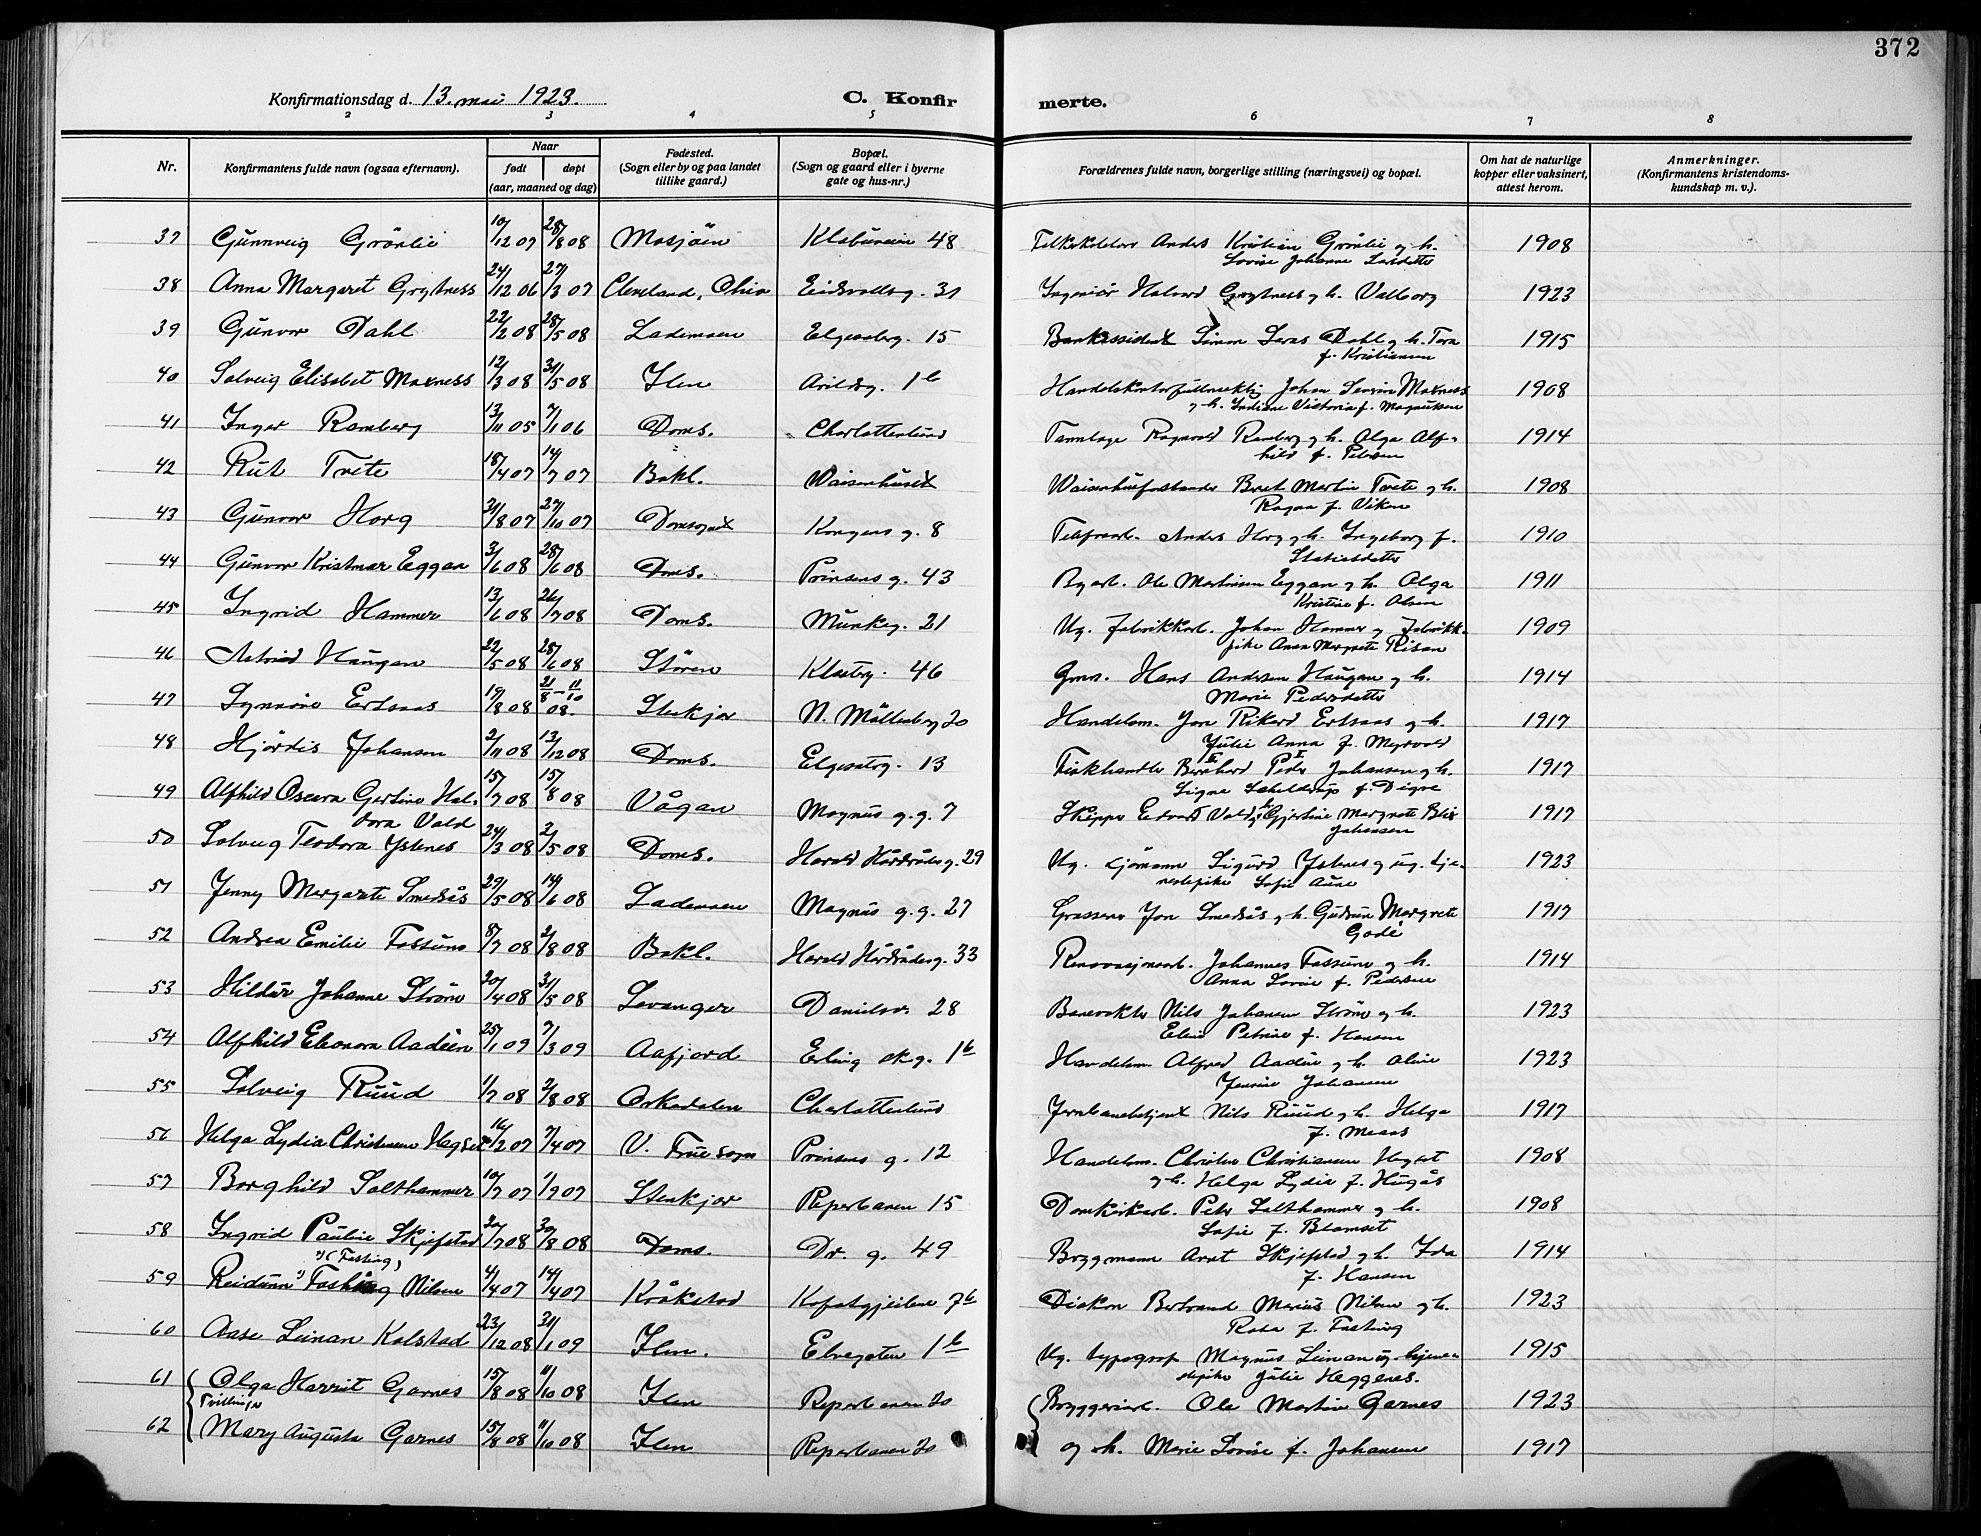 372
Konfirmationsdag d. 13. mai 1923.
C. Konfir
merte.
2 3 4 5 6 7 8
Nr.
Konfirmantens fulde navn (ogsaa efternavn).
Naar
født døpt
(aar, maaned og dag)
Fødested.
(Sogn eller by og paa landet
tillike gaard.)
Bopæl.
(Sogn og gaard eller i byerne
gate og hus-nr.)
Forældrenes fulde navn, borgerlige stilling (næringsvei) og bopæl.
Om hat de naturlige
kopper eller vaksinert,
attest herom.
Anmerkninger.
(Konfirmantens kristendoms-
kundskap m. v.).
37 Gunnveig Grönlie 10/12 07 28/8 08 Mosjöen 48 Anders Kristian Grönlie og h. 1908
Lovise Johanne
38 Anna Margaret Grytness 24/12 06 27/3 07 Cleveland, Ohio Eidsvollsg. 31 Ingeniör Halvard Grytness og h. Valborg 1923
39 Gunvor Dahl 22/12 08 28/5 08 Lademoen Elgesæterg. 15 Bankassistent Simon Dahl og h. Tora 1915
f. Kristiansen
40 Solveig Elisabet Moxness 12/3 08 31/5 08 Ilen Arildsg. 1 b Johan Moxness 1908
og h. Victoria f. Magnussen
41 Inger Ramberg 13/11 05 7/1 06 Doms. Charlottenlund Tannlæge Ragnvald Ramberg og h. Olga Alf- 1914
hild f. Petersen
42 Rut Tvete 18/4 07 14/7 07 Bakl. Waisenhuset Waisenhusforstander Martin Tvete og h. 1908
Ragna f. Viken
43 Gunvor Horg 21/8 07 27/10 07 Domsognet Kongens g. 8 Anders Horg og h. Ingeborg f. 1910
44 Gunvor Eggan 3/6 08 28/6 08 Doms. Prinsens g. 43 Byarb. Ole Martinsen Eggan og h. Olga 1911
Kristine f. Olsen
45 Ingrid Hammer 13/6 08 26/7 08 Doms. Munkeg. 21 Ug. fabrikkarb. Johan Hammer og fabrikk- 1909
pike Anna Margrete Risan
46 Astrid Haugan 22/5 08 28/6 08 Stören Klostrg. 46 Hans Andersen Haugan og h. 1914
Marie Pedersdatter
47 Synnöve Ertsaas 19/8 08 21/8 - 11/10 08. Stenkjær N. Möllenberg 20 Handelsm. Jon Rikard Ertsaas og h. 1917
Julie Anna f. Myrvold
48 Hjördis Johansen 2/11 08 13/12 08 Doms. Elgesætrg. 13 Fiskhandler Bernhard Peder Johansen og h. 1917
Signe f. Digre
49 Alfhild Oscara Gertine Hal- 15/7 08 15/8 08 Vågan Magnus g. g. 7 Skipper Edvard Vold og Gjertine Margrete Blix 1917
dora Vold Johansen
50 Solveig Teodora Ystnes 24/3 08 2/5 08 Doms. Harald Hårdrådes g. 29 Ug. sjömann Sigurd Ystnes og ug. tje- 1923
nestepike Sofie Aune
51 Jenny Margarete Smedsås 29/5 08 14/6 08 Lademoen Magnus g. g. 27 Jon Smedsås og h. Gudrun Margrete 1917
52 Andrea Emilie Fossum 8/7 08 2/8 08 Bakl. Harald Hårdrådesg. 33 Renovasjonsarb. Johannes Fossum og h. 1914
Anna Lovise f. Pedersen
53 Hildur Johanne Ström 20/4 08 31/5 08 Levanger Danielsv. 28 Banevokter Nils Johansen Ström og h. 1923
Petrine f. Hansen
54 Alfhild Eleonora Aadeen 25/1 09 7/3 09 Aafjord Erling sk.g. 1 b Handelsm. Alfred og h. Oline 1923
Jensine Johansen
55 Solveig Ruud 1/7 08 2/8 08 Orkedalen Charlottenlund Jernbanebetjent Nils Ruud og h. Helga 1917
f. Moans
56 Helga Lydia Christensen Hegset 16/2 07 7/4 07 V. Frue sogn Prinsens g. 12 Handelsm. Christen Christiansen Hegset 1908
og h. Helga Lydia f. Hugås
57 Borghild Salthammer 10/7 07 1/9 07 Stenkjær Reperbanen 15 Domkirkearb. Peter Salthammer og h. 1908
Sofie f.
58 Ingrid Pauline Skjefstad 20/7 08 30/8 08 Doms. Dr. g. 49 Bryggmann Arnt Skjefstad og h. Ida 1914
f. Hansen
1) (Fasting)
59 Reidunn 1) Nilsen 4/4 07 14/4 07 Kråkstad 7 b Diakon Bertrand Marius Nilsen og h. 1923
f. Fasting
60 Aase Leinan Kolstad 23/12 08 31/1 09 Ilen. Elvegaten 1 b Ug. typograf Magnus Leinan og tjene- 1915
stepike Julie Heggenes.
61 Olga Harriet Garnes 15/8 08 11/10 08 Ilen Reperbanen 20 Bryggeriarb. Ole Martin Garnes 1923
Tvillinger
62 Mary Augusta Garnes 15/8 08 11/10 08 Ilen Reperbanen 20 og h. Marie Lovise f. Johansen 1917